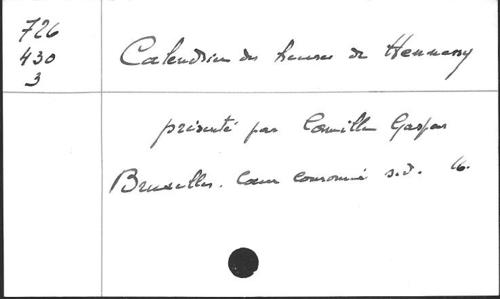 726
430
3
Calendrier des heures de Hennessy
présenté par Camille Gaspar
Bruxelles. Coeur couronné s.d. 16.